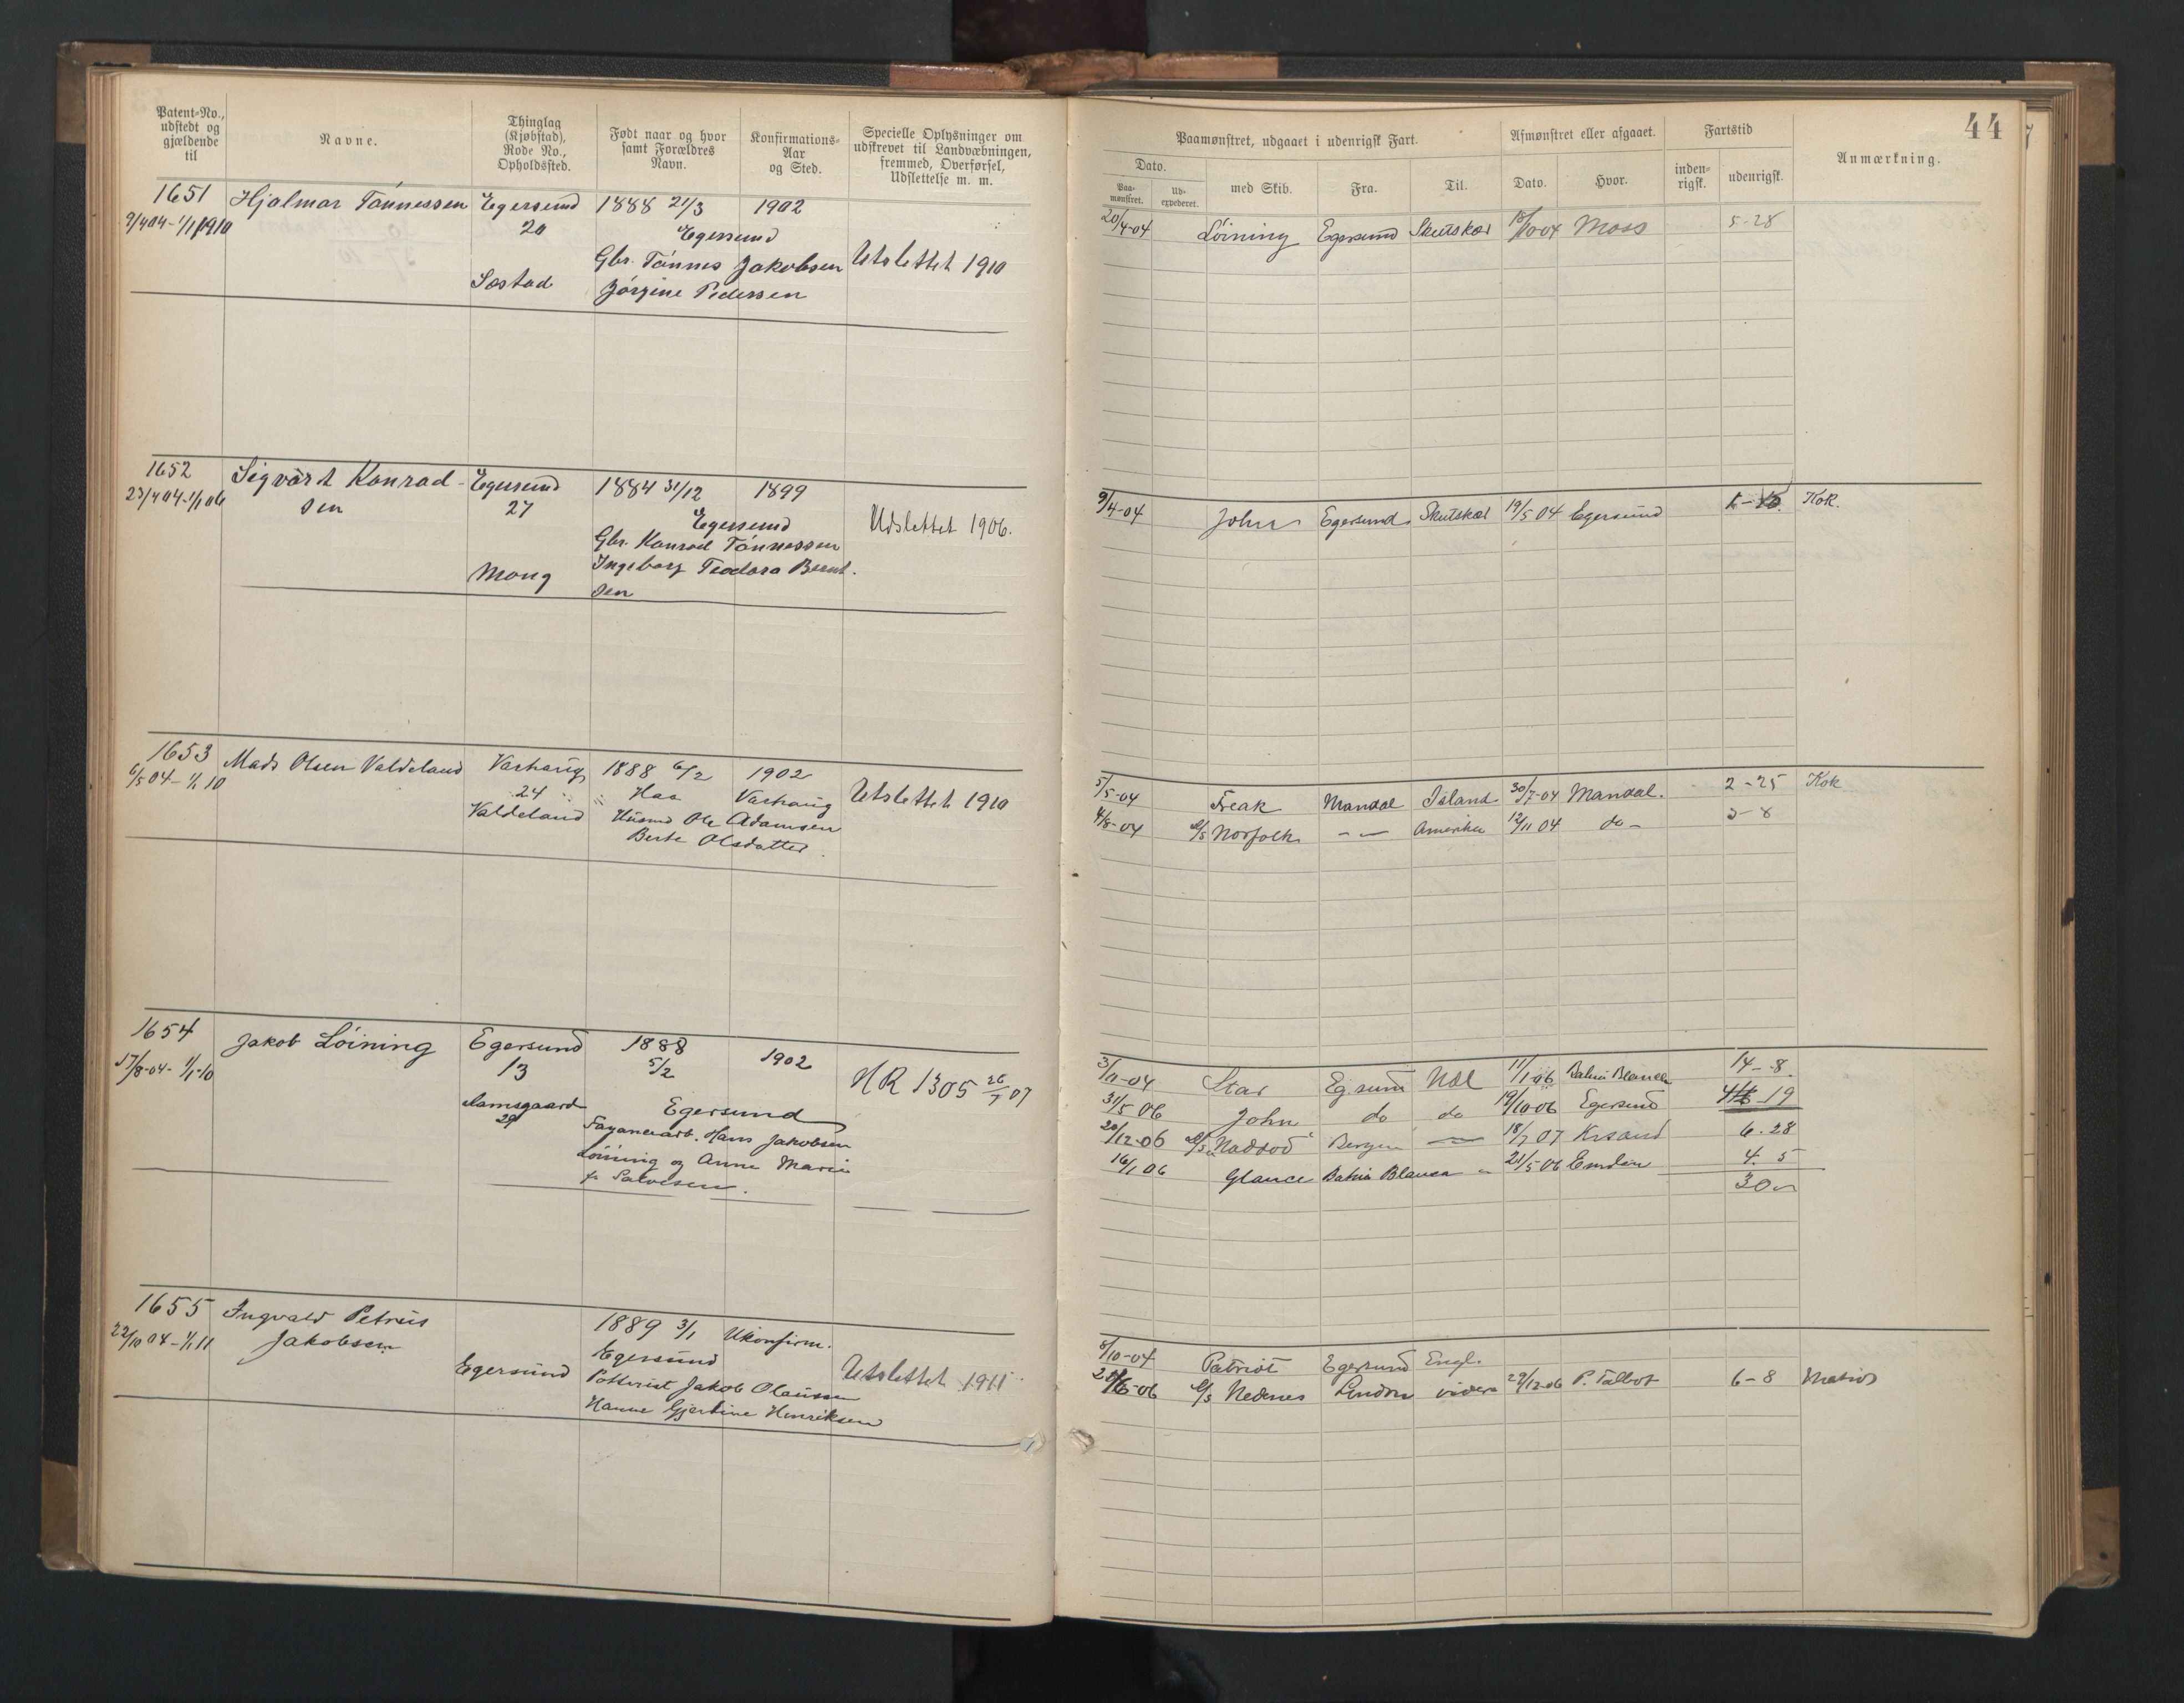 Patent-No., udstedt og gjældende til
Navne.
Thinglag (Kjøbstad), Rode No., Opholdssted.
Født naar og hvor samt Forældres Navn.
Konfirmations-Aar og Sted.
Specielle Oplysninger om udskrevet til Landvæbningen, fremmed, Overførsel, Udslettelse m. m.
1651 Hjalmar Tönnessen Egersund 1888 21/3 1902
9/4 04-1/1 1910 20 Egersund
Gbr. Tönnes Jakobsen Utslettet 1910
Sæstad Jörgine Pedersen
1652 Sigvart Konrad- Egersund 1884 31/12 1899
23/4 04-1/1 06 sen 27 Egersund Udslettet 1906.
Gbr. Konrad Tönnessen
Mong Ingeborg Teodora Bernt.
sen
1653 Mads Olsen Valdeland Varhaug 1888 6/2 1902
6/5 04-1/1 10 24 Haa Varhaug Utslettet 1910
Valdeland Husmd Ole Adamsen
Berte Olsdatter.
1654 Jakob Löining Egersund 1888 1902
17/8-04-1/1-10 13 5/2 HR 1305 07
29 Egersund
Hans Jakobsen
Löining og Anne Marie
f. Salvesen.
1655 Ingvald Petrus 1889 3/1 Ukonfirm.
22/10 04-1/1 11 Jakobsen Egersund
Egersund Potterist Jakob Olaussen Utslettet 1911
Hanne Gjertine Henriksen
44
Paamønstret, udgaaet i udenrigsk Fart.
Afmønstret eller afgaaet.
Fartstid
Anmærkning.
Dato.
Paa-mønstret.
Ud-expederet.
med Skib.
Fra.
Til.
Dato.
Hvor.
inden-rigsk.
udenrigsk.
20/4-04 Löining Egersund Skutskär Moss 5-28
9/4-04 John Egersund Skutskär 19/5 04 Egersund Kok.
5/5-04 Freak Mandal Island 30/7-04 Mandal. 2-25 Kok
4/8-04 D/S Norfolk -"- Amerika 12/11 04 do-
3/11-04 Star Eg.sund Udl 11/1-06 Bahia Blanca 14-8.
31/5 06 John do do 19/10-06 Egersund 19
20/12-06 D/S Naddod Bergen -"- 18/7 07 Krsand 6.28
16/1 06 Glance Bahia Blanca " 21/5-06 Emden 4. 5
8/10-04 Patriot Egersund Engl.
06 D/S Nedenes London videre 29/12-06 P. Talbot 6-8 Matros